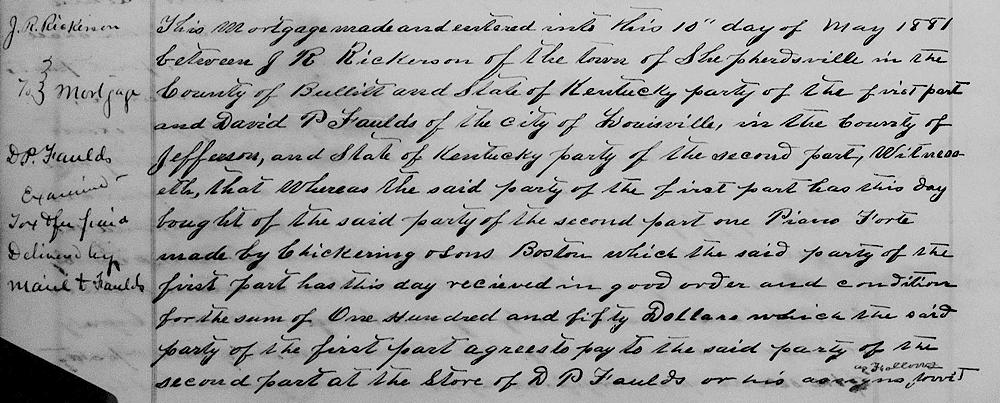 J. R. Rickerson
To } Mortgage
D P. Faulds
Examined
Tax & fee paid
Delivered by
mail to Faulds
This Mortgage made and entered into this 10" day of May 1881
between J R Rickerson of the town of Shepherdsville in the
County of Bullitt and State of Kentucky party of the first part
and David P Faulds of the City of Louisville, in the County of
Jefferson, and State of Kentucky party of the second part, Witness
eth, that Whereas the said party of the first part has this day
bought of the said party of the second part one Piano Forte
made by Chickering & Sons Boston which the said party of the
first part has this day recieved in good order and condition
for the sum of One Hundred and fifty Dollars which the said
party of the first part agrees to pay to the said party of the
as Follows
second part at the Store of D P Faulds or his assigns